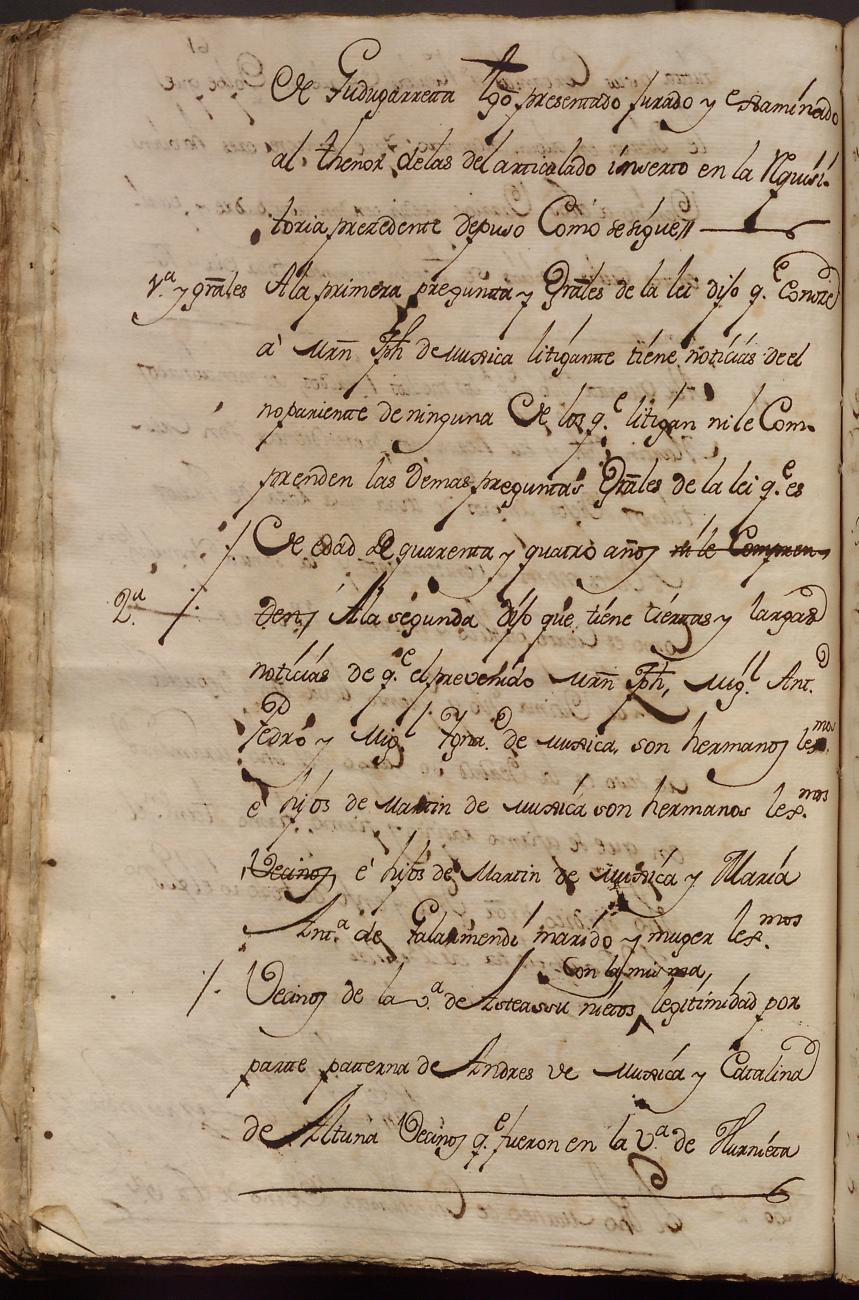 De Gudugarreta tgo. presentado jurado y examinado
al thenor delas del articulado inserto en la Requisi-
toria prezedente depuso Como se sigue//
1.ª y gräles A la primera pregunta y Gräles de la lei dijo q.e Conoze
à Mrñ Jph de Muxica litigante tiene noticias de el
no pariente de ninguna De los q.e litigan ni le Com-
prenden las Demas preguntas Gräles de la lei q.e es
De edad de quarenta y quatro años ni le Compren-
2.ª den/ Ala segunda dijo que tiene ciertas y largas
noticias de q.e el prevenido Mrñ Jph, Mig.l Ant.o
Pedro y Mig.l Ygn.o de Muxica, son hermanos lex.mos
é hijos de Martin de Muxica son hermanos lex.mos
Vecinos, é hijos de Martin de Muxica y Maria
Ant.a de Galarmendi marido y muger lex.mos
Con la misma,
Vecinos de la v.a de Asteassu nietos legitimidad por
parte paterna de Andres de Muxica y Catalina
de Altuna Vecinos q.e fueron en la V.a de Hurnieta